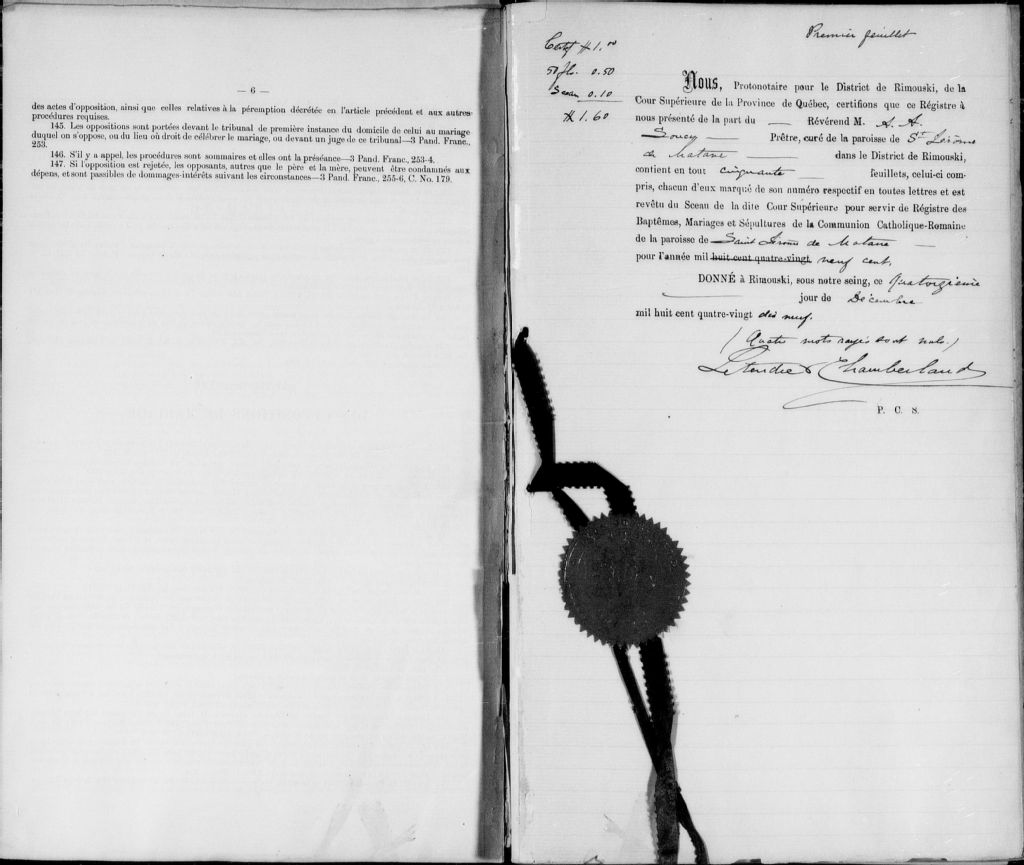 — 6 —
des actes d'opposition, ainsi que celles relatives à la péremption décrétée en l'article précédent et aux autres
procédures requises.
145. Les oppositions sont portées devant le tribunal de première instance du domicile de celui au mariage
duquel on s'oppose, ou du lieu où droit de célébrer le mariage, ou devant un juge de ce tribunal—3 Pand. Franc.,
253.
146. S'il y a appel, les procédures sont sommaires et elles ont la préséance—3 Pand. Franc., 253-4.
147. Si l'opposition est rejetée, les opposants, autres que le père et la mère, peuvent être condamnés aux
dépens, et sont passibles de dommages-intérêts suivant les circonstances—3 Pand. Franc., 255-6, C. No. 179.
Premier feuillet
Certif $1.00
50 fls. 0.50
Sceau 0.10
$1.60
Nous, Protonotaire pour le District de Rimouski, de la
Cour Supérieure de la Province de Québec, certifions que ce Régistre à
nous présenté de la part du — Révérend M. A. A.
Soucy — Prêtre, curé de la paroisse de St Jérôme
de Matane — dans le District de Rimouski,
contient en tout cinquante — feuillets, celui-ci com-
pris, chacun d'eux marqué de son numéro respectif en toutes lettres et est
revêtu du Sceau de la dite Cour Supérieure pour servir de Régistre des
Baptêmes, Mariages et Sépultures de la Communion Catholique-Romaine
de la paroisse de Saint Jérôme de Matane —
pour l'année mil huit cent quatre-vingt neuf cent.
DONNÉ à Rimouski, sous notre seing, ce Quatorzième
— jour de Décembre
mil huit cent quatre-vingt dix neuf.
(Quatre mots rayés sont nuls.)
Letendre & Chamberland
P. C. S.